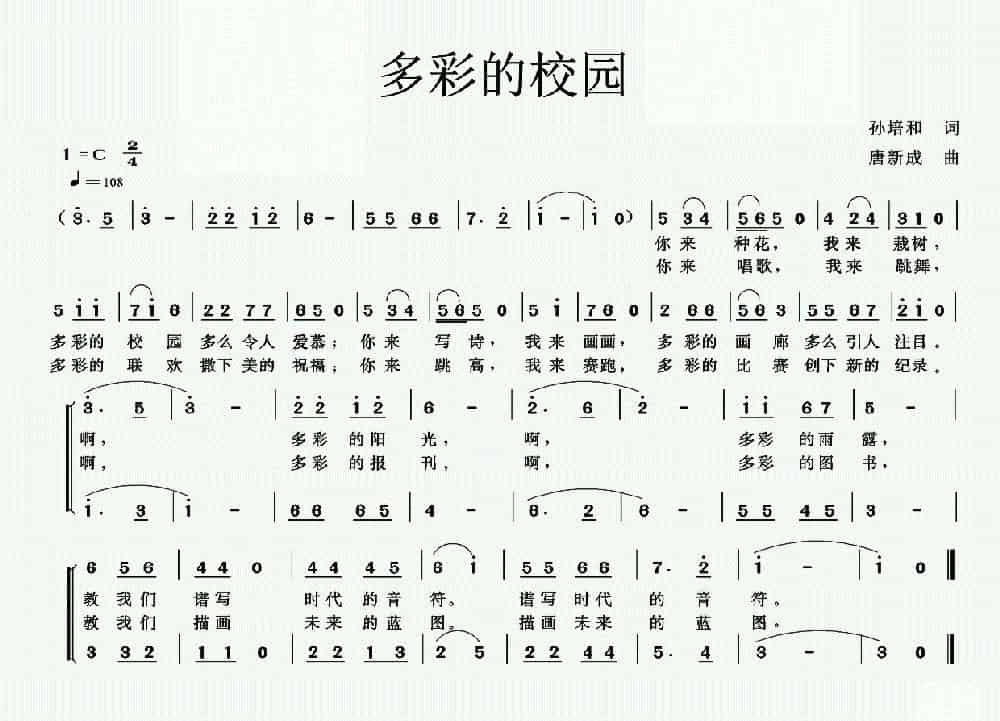 多彩的校园
孙培和 词
1=C 2/4
唐新成 曲
♩=108
(3̇. 5̇ | 3̇ - | 2̇ 2̇ 1̇ 2̇ | 6 - | 5 5 6 6 | 7. 2̇ | 1̇ - | 1̇ 0) | 5 3 4 | 5 6 5 0 | 4 2 4 | 3 1 0 |
你来 种花， 我来 栽树，
你来 唱歌， 我来 跳舞，
5 1̇ 1̇ | 7 1̇ 6 | 2 2 7 7 | 6 5 0 | 5 3 4 | 5 6 5 0 | 5 1̇ | 7 6 0 | 2 6 6 | 5 6 3 | 5 5 6 7 | 2̇ 1̇ 0 |
多彩的 校 园 多么 令人 爱慕；你来 写 诗，我来 画画， 多彩的 画 廊 多么 引人 注目。
多彩的 联 欢 撒下 美的 祝福；你来 跳 高，我来 赛跑， 多彩的 比 赛 创下 新的 纪录。
3̇. 5 | 3̇ - | 2̇ 2̇ 1̇ 2̇ | 6 - | 2̇. 6 | 2̇ - | 1̇ 1̇ 6 7 | 5 - |
啊， 多彩 的阳 光， 啊， 多彩 的雨 露，
啊， 多彩 的报 刊， 啊， 多彩 的图 书，
1̇. 3 | 1̇ - | 6 6 6 5 | 4 - | 6. 2 | 6 - | 5 5 4 5 | 3 - |
6 5 6 | 4 4 0 | 4 4 4 5 | 6 1̇ | 5 5 6 6 | 7. 2̇ | 1̇ - | 1̇ 0
教我们 谱写 时代 的音 符。 谱写 时代 的 音 符。
教我们 描画 未来 的蓝 图。 描画 未来 的 蓝 图。
3 3 2 | 1 1 0 | 2 2 1 3 | 2 5 | 2 2 4 4 | 5. 4 | 3 - | 3 0